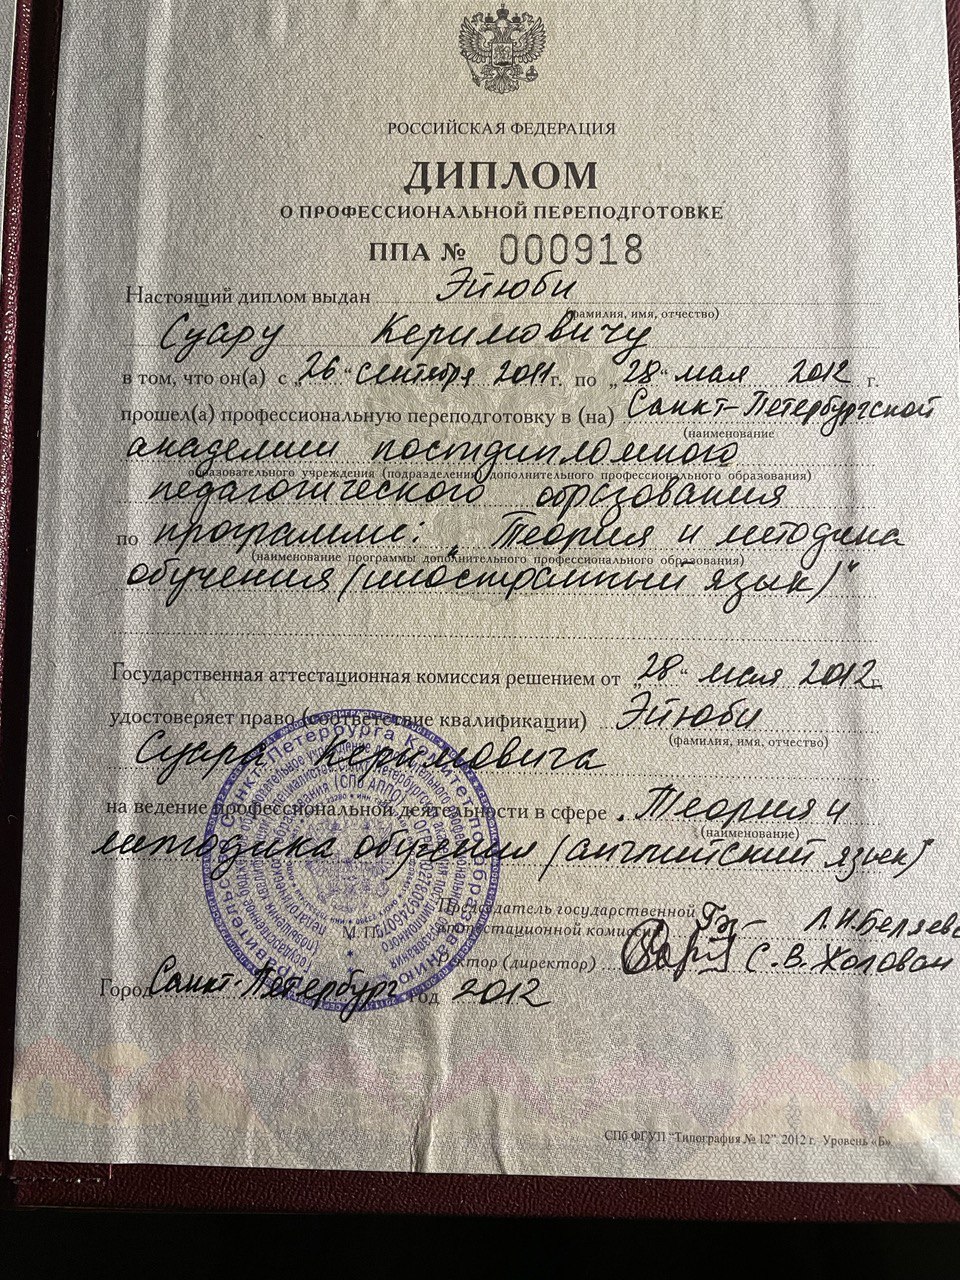 РОССИЙСКАЯ ФЕДЕРАЦИЯ
ДИПЛОМ
О ПРОФЕССИОНАЛЬНОЙ ПЕРЕПОДГОТОВКЕ
ППА № 000918
Настоящий диплом выдан Эйюби
(фамилия, имя, отчество)
Суару Керимовичу
в том, что он(а) с „26“ сентября 2011 г. по „28“ мая 2012 г.
прошел(а) профессиональную переподготовку в (на) Санкт-Петербургской
(наименование
академии постдипломного
образовательного учреждения (подразделения) дополнительного профессионального образования)
педагогического образования
по программе: „Теория и методика
(наименование программы дополнительного профессионального образования)
обучения (иностранный язык)“
Государственная аттестационная комиссия решением от „28“ мая 2012 г.
удостоверяет право (соответствие квалификации) Эйюби
(фамилия, имя, отчество)
Суара Керимовича
на ведение профессиональной деятельности в сфере Теория и
(наименование)
методика обучения (английский язык)
Председатель государственной
аттестационной комиссии Л.И.Беляева
М.П.
Ректор (директор) С.В.Жолован
Город Санкт-Петербург год 2012
СПб ФГУП "Типография № 12". 2012 г. Уровень «Б».